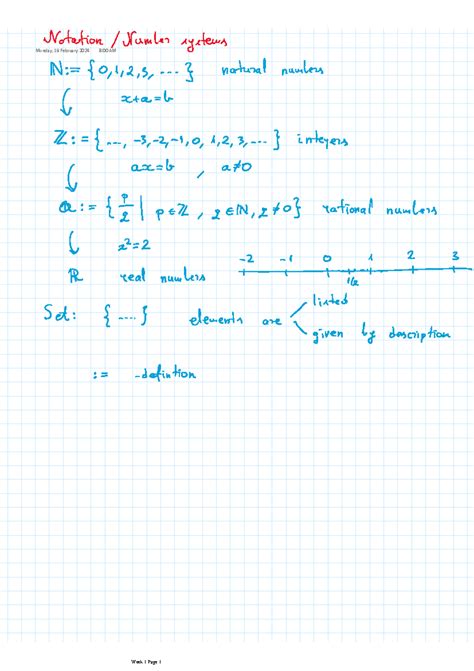 Notation / Number systems
Monday, 26 February 2024 8:00 AM
ℕ := { 0, 1, 2, 3, ... } natural numbers
x + a = b
ℤ := { ..., -3, -2, -1, 0, 1, 2, 3, ... } integers
ax = b , a ≠ 0
ℚ := { p/q | p ∈ ℤ , q ∈ ℕ, q ≠ 0 } rational numbers
x² = 2
ℝ real numbers
-2 -1 0 1 2 3
1/2
Set: { .... } elements are
listed
given by description
:= - defintion
Week 1 Page 1